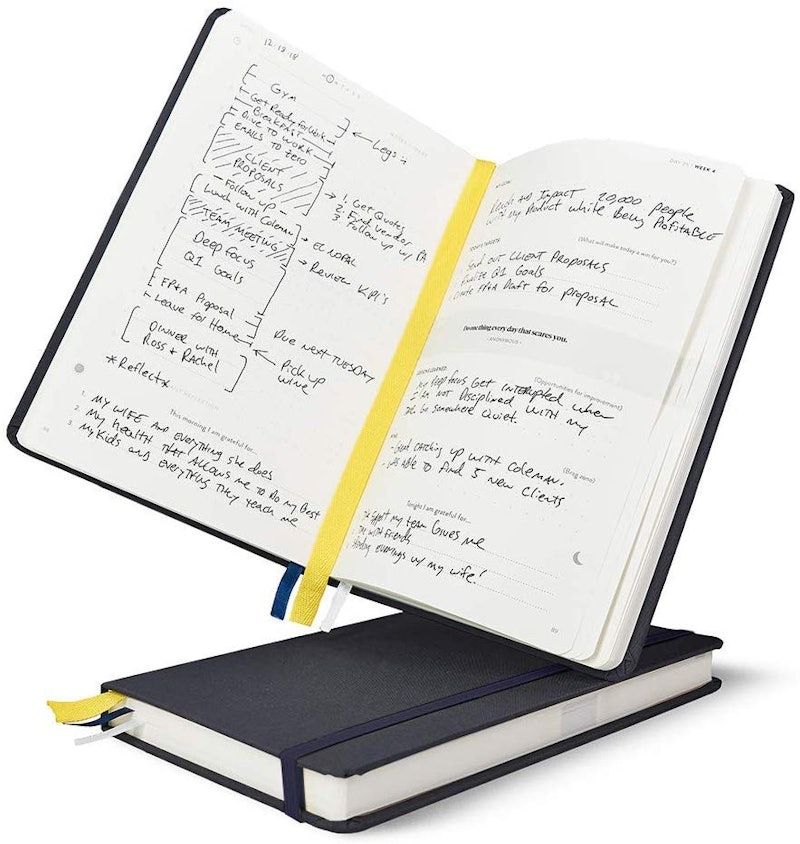 12.18.18
GYM
Get Ready for Work
BREAKFAST
DRIVE TO WORK
EMAILS TO ZERO
← Legs
CLIENT
PROPOSALS
Follow up
Lunch WITH Coleman
→ 1. Get Quotes
2. Find vendor
3 Follow up w/ PA
TEAM MEETING
→ EL NOPAL
Deep focus
Q1 Goals
→ Review KPI's
FP&A Proposal
Leave for Home
Due next TUESDAY
DINNER WITH
Ross & RACHEL
Pick up
wine
*Reflect*
This morning I am grateful for...
1. MY WIFE AND everything she does
2. My health THAT ALLOWS me To Do my Best
3. My Kids and everything They teach me
88
WEEK 4
MY GOAL:
AND Impact 20,000 people
WITH My Product while being Profitable
(What will make today a win for you?)
OUT CLIENT PROPOSALS
Q1 Goals
FP&A Draft for proposal
Do one thing every day that scares you.
- ANONYMOUS -
LESSONS LEARNED:
(Opportunities for improvement)
Deep focus Get interupted when
I Am not Disciplined WITH my
Go Somewhere Quiet.
(Brag zone)
catching up with Coleman.
able to find 5 new clients
Tonight I am grateful for...
my team Gives me
with friends
evenings w/ my wife!
89